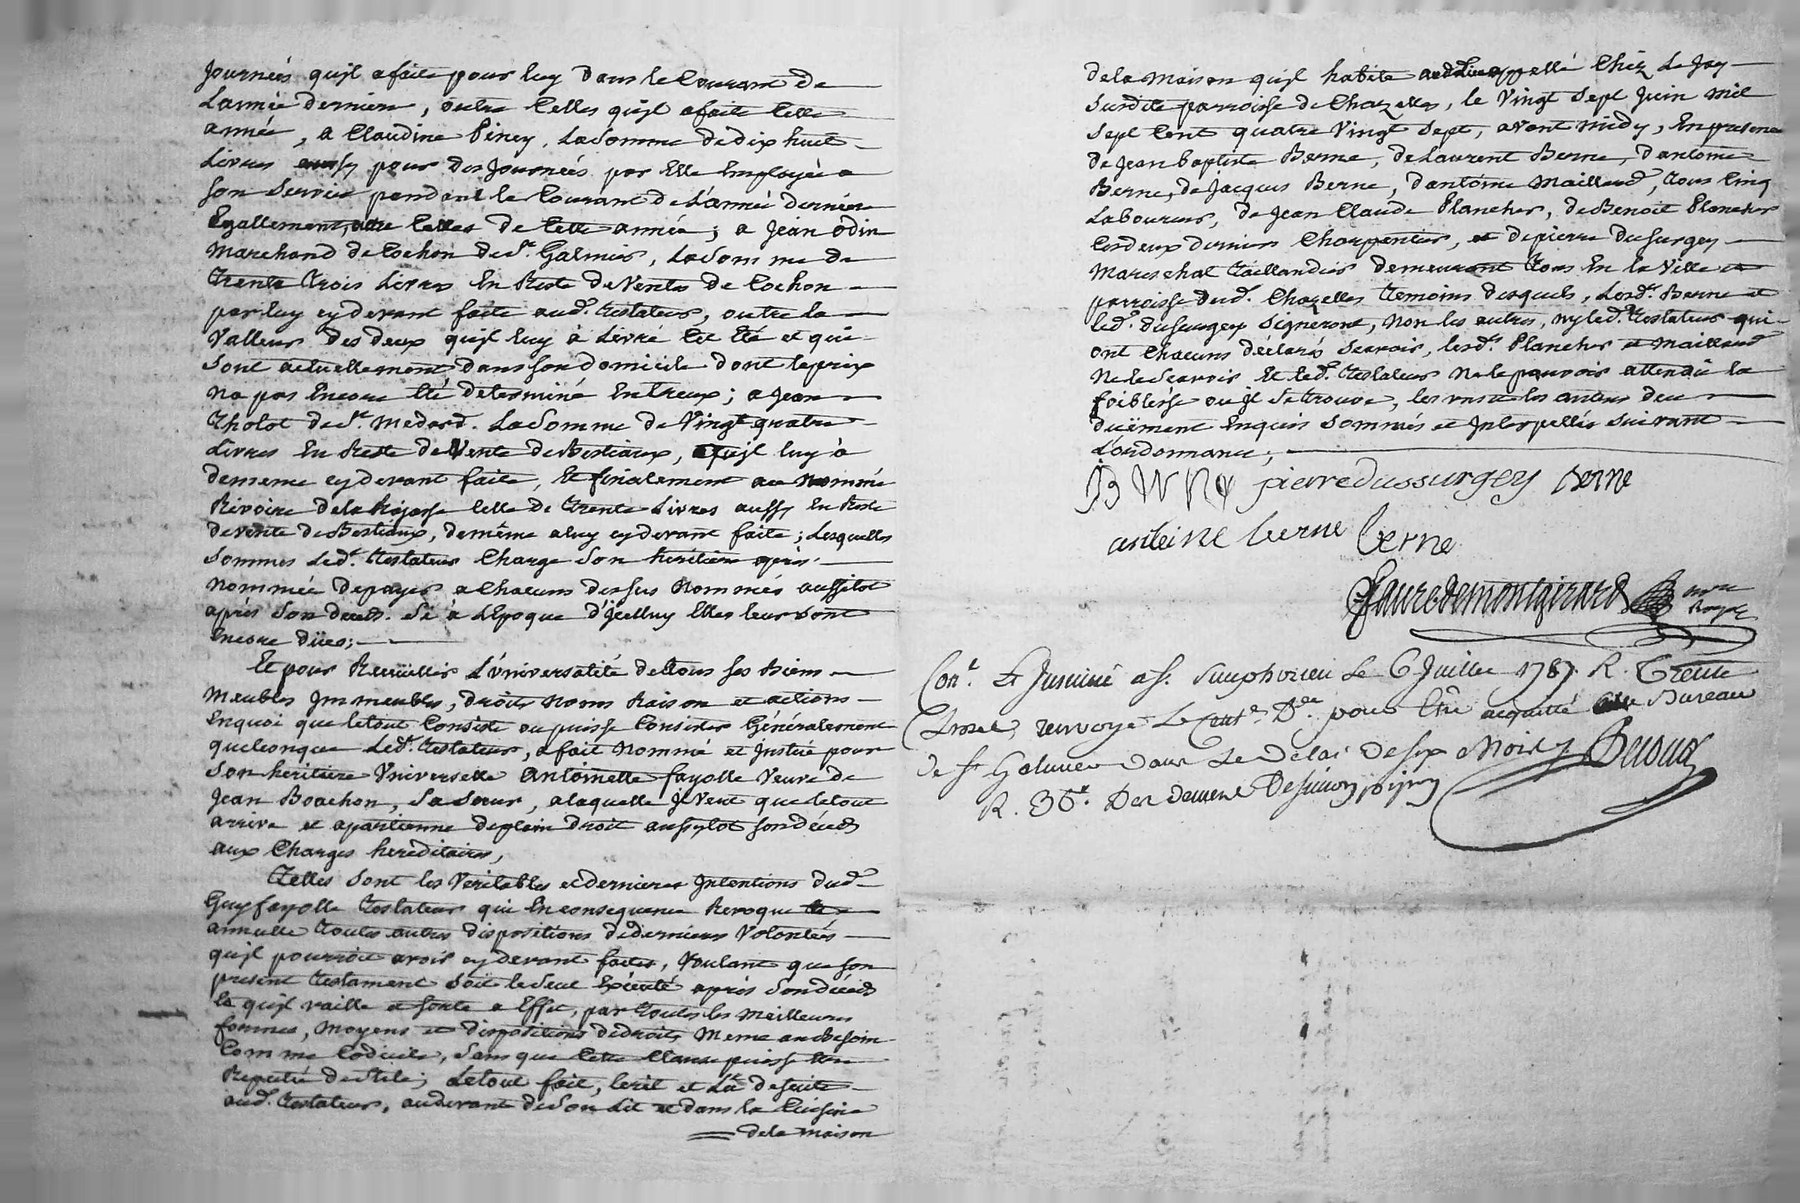 Journées qu'jl a faite pour luy dans le Courant de
L'année derniere, outre Celles qu'jl a faite Cette
année, a Claudine Piney, La Somme de dix huit
Livres aussy pour des Journées par Elle Employée a
son Service pendant le Courant de L'année derniere
Egallement, outre Celles de Cette année; a Jean Odin
Marchand de Cochon de St. Galmier, La Somme de
Trente Trois Livres En Reste de Ventes de Cochon
par luy cydevant faite aud. Testateur, outre la
Valleur des deux qu'jl luy à Livré Cet Eté et qui
Sont actuellement dans son domicile dont le prix
Na pas Encore Eté determiné Entreux; a Jean
Tholot de St. Medard. La Somme de Vingt quatre
Livres En Reste de Vente de Bestiaux, qu'jl luy à
de meme cydevant faite, Et finalement au Nommé
Rivoire de la Rojasse Celle de Trente Livres aussy En Reste
de vente de Bestiaux, de même a luy cydevant faite; Lesquelles
Sommes Led. Testateur Charge Son heritiere après
Nommée de payer a Chacuns dessus Nommés aussitot
après Son deceds. Si à L'Epoque d'jcelluy Elles leur sont
Encore düës;
Et pour Recuëillir L'universalité de tous ses Biens
Meubles Jmmeubles, droits Noms Raison et actions
Enquoi que le tout Consiste ou puisse Consister Généralement
quelconque Led. Testateur, a fait Nommé et Jnstitué pour
Son heritiere Universelle Antoinette fayolle Veuve de
Jean Boachon, Sa Soeur, a laquelle jl Veut que le tout
arrive et apartienne de plein droit aussytot son décéds
aux Charges hereditaires,
Telles Sont les Veritables et dernieres Jntentions dud.
Guy fayolle Testateur qui En consequence Revoque
annulle Toutes autres dispositions de dernieres Volontés
qu'jl pourroit avoir cydevant faites, Voulant que son
present Testament Soit le Seul Exécuté après Son décéds
Et qu'jl vaille et sorte a Effet, par Toutes les meilleures
formes, Moyens et dispositions de droits Meme au Besoin
Comme Codicile, Sans que Cette Clause puisse Etre
Reputée de stile; Le tout fait, Ecrit et Lû de suite
aud. Testateur, au devant de Son Lit et dans la Cuisine
de la maison
de la Maison qu'jl habite au Lieu appellé Chez Le Jay
Susdite parroisse de Chazelles, le Vingt Sept Juin Mil
Sept Cent quatre Vingt Sept, avant midy, En presence
de Jean Baptiste Berne, de Laurent Berne, d'antoine
Berne, de Jacques Berne, d'antoine Maillard, Tous Cinq
Laboureurs, de Jean Claude Plancher, de Benoit Plancher
Ces deux derniers Charpentier, et de pierre Dusurgey
Mareschal Taillandier demeurant Tous En la Ville et
parroisse dud. Chazelles Temoins desquels, Lesd. Berne et
led. dusurgey Signeront, Non les autres, ny led. Testateur qui
ont Chacuns déclaré Scavoir, lesd. Plancher et Maillard
Ne le Scavoir Et led. Testateur Ne le pouvoir attendû la
foiblesse ou jl Se Trouve, les uns et les autres de ce
duëment Enquis Sommés et Interpellés Suivant
L'ordonnance;
pierre dussurgey berne
antoine berne berne
Fauredemontgirard Nore
Royal
Con. Et Jnsinué a St. Simphorien Le 6 Juillet 1787. R. Trente
renvoyé Le Cent. D. pour Etre acquitté au Bureau
de St Galmier dans Le Delai De six Mois